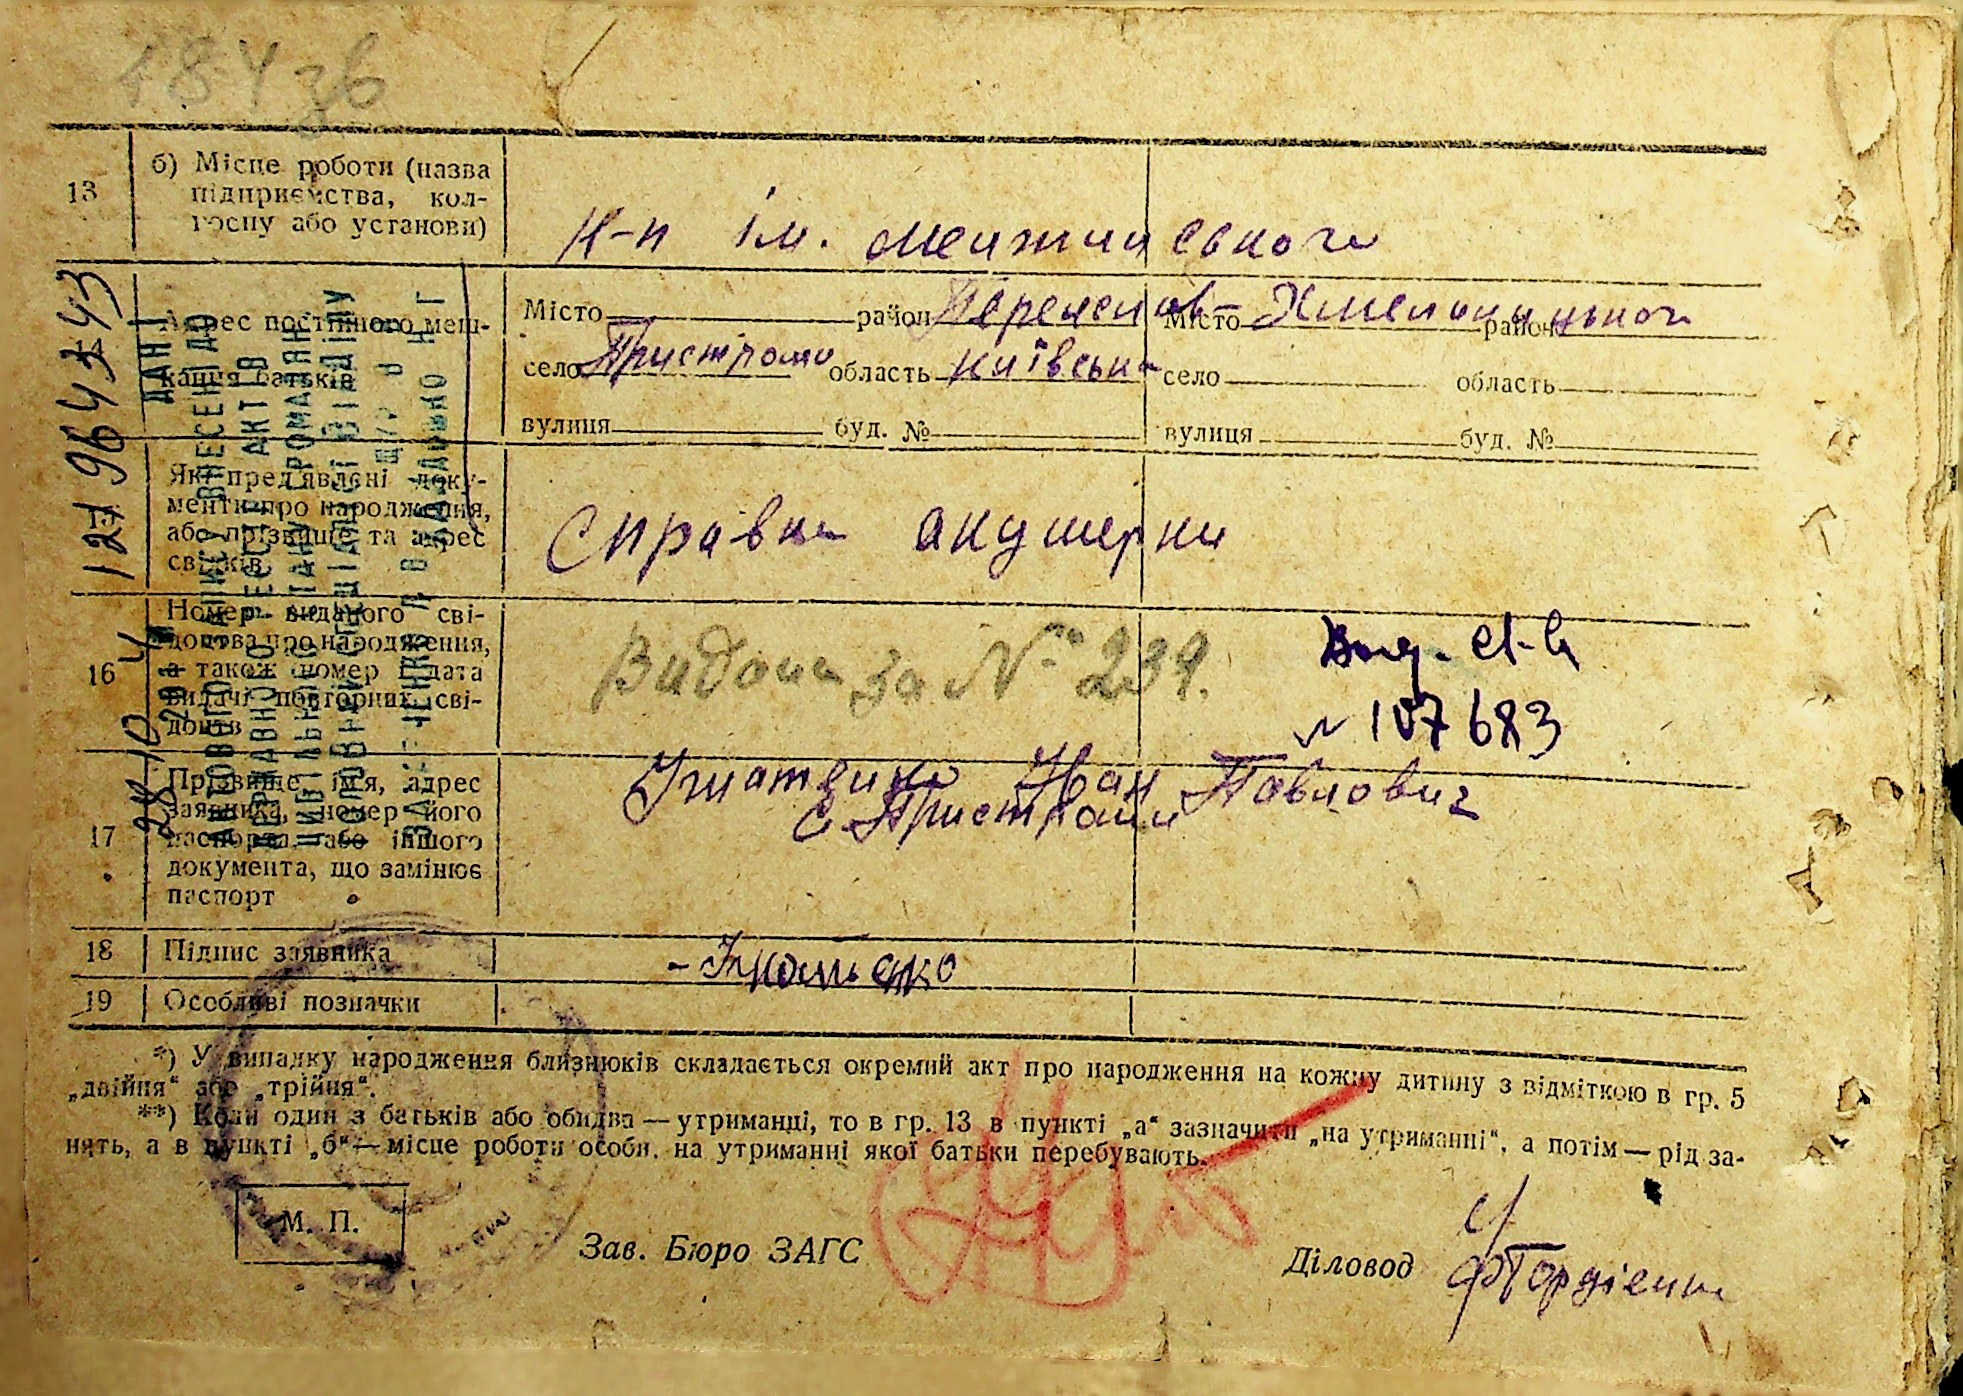 184 зв
13
б) Місце роботи (назва
підприємства, кол-
госпу або установи)
К-п ім. Менжинського
Адрес постійного меш-
кання батьків
Місто район Переяслав- Хмельницького
Місто район
село Пристроми область Київська
село область
вулиця буд. №
вулиця буд. №
Які пред'явлені доку-
менти про народження,
або прізвище та адрес
свідків
Справка акушерки
16
Номер виданого сві-
доцтва про народження,
а також номер і дата
видачі повторних сві-
доцтв
Видано за № 239.
№ 107683
17
Прізвище, ім'я, адрес
заявника, номер його
паспорта, або іншого
документа, що замінює
паспорт
Ігнатенко Іван Павлович
с. Пристроми
18
Підпис заявника
19
Особливі позначки
*) У випадку народження близнюків складається окремий акт про народження на кожну дитину з відміткою в гр. 5
„двійня“ або „трійня“.
**) Коли один з батьків або обидва — утриманці, то в гр. 13 в пункті „а“ зазначити „на утриманні“, а потім — рід за-
нять, а в пункті „б“ — місце роботи особи, на утриманні якої батьки перебувають.
М. П.
Зав. Бюро ЗАГС
Діловод
ДАНІ